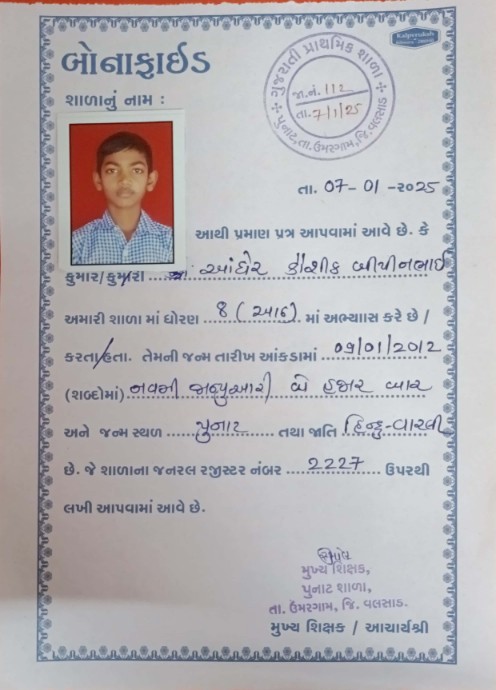 Kalpvruksh
બોનાફાઈડ
શાળાનું નામ :
ગુજરાતી પ્રાથમિક શાળા
જા.નં. 112
તા. 7/1/25
પુનાટ, તા. ઉમરગામ, જિ. વલસાડ
તા. 07-01-2025
આથી પ્રમાણ પત્ર આપવામાં આવે છે. કે
કુમાર/કુમારી આંધેર કૌશીક બીપીનભાઈ
અમારી શાળા માં ધોરણ 8 (આઠ) માં અભ્યાસ કરે છે /
કરતા/હતા. તેમની જન્મ તારીખ આંકડામાં 09/01/2012
(શબ્દોમાં) નવમી જાન્યુઆરી બે હજાર બાર
અને જન્મ સ્થળ પુનાટ તથા જાતિ હિન્દુ-વારલી
છે. જે શાળાના જનરલ રજીસ્ટર નંબર 2227 ઉપરથી
લખી આપવામાં આવે છે.
મુખ્ય શિક્ષક,
પુનાટ શાળા,
તા. ઉંમરગામ, જિ. વલસાડ.
મુખ્ય શિક્ષક / આચાર્યશ્રી